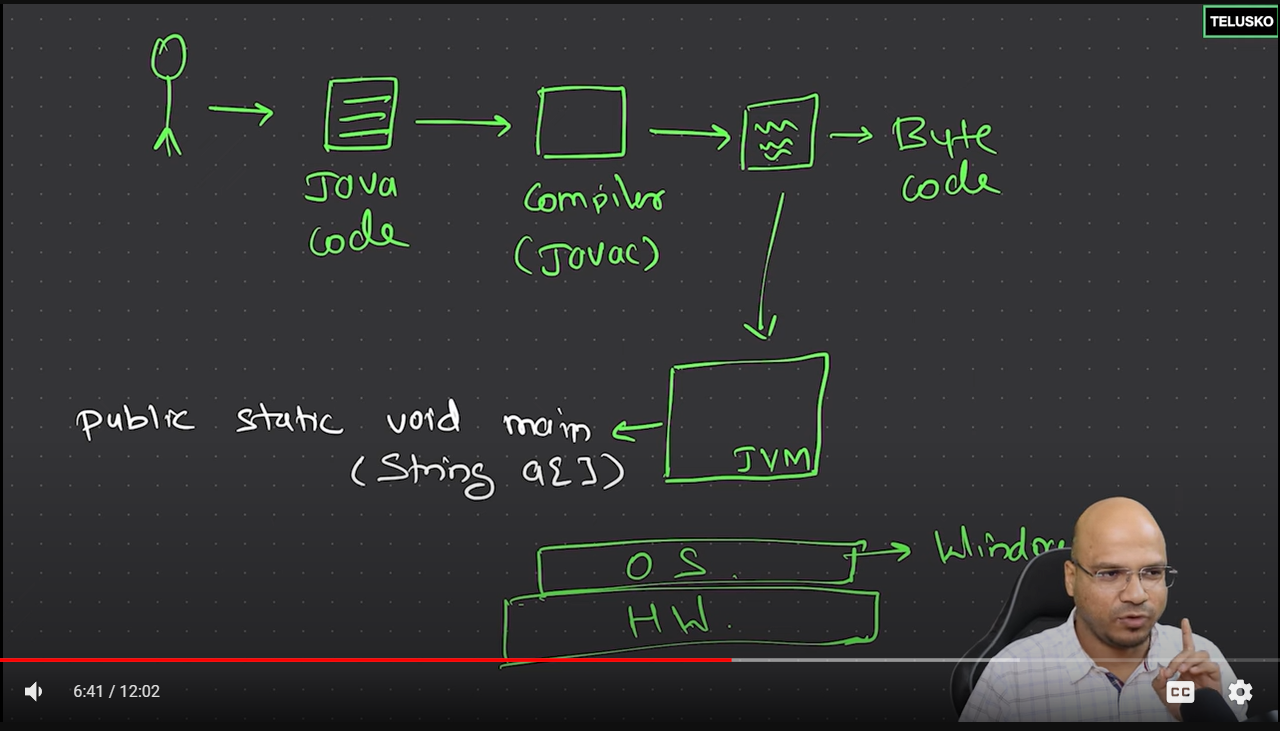 TELUSKO
Java
code
Compiler
(Javac)
Byte
code
public static void main
(String a[])
JVM
OS.
HW.
6:41 / 12:02
CC